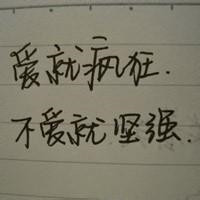 爱就疯狂.
不爱就坚强.